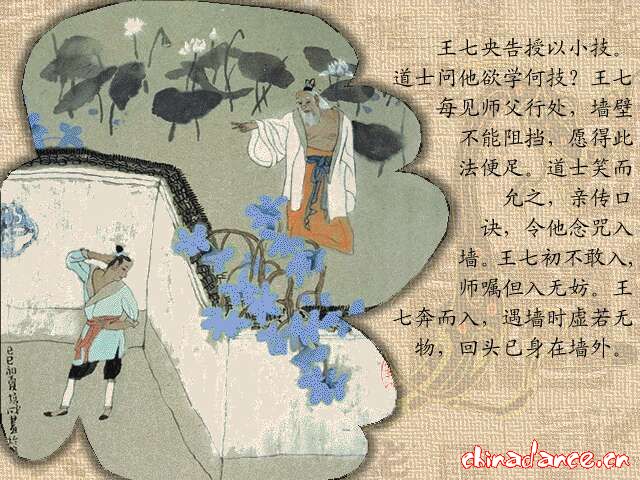 王七央告授以小技。
道士问他欲学何技？王七
每见师父行处，墙壁
不能阻挡，愿得此
法便足。道士笑而
允之，亲传口
诀，令他念咒入
墙。王七初不敢入，
师嘱但入无妨。王
七奔而入，遇墙时虚若无
物，回头已身在墙外。
chinadance.cn